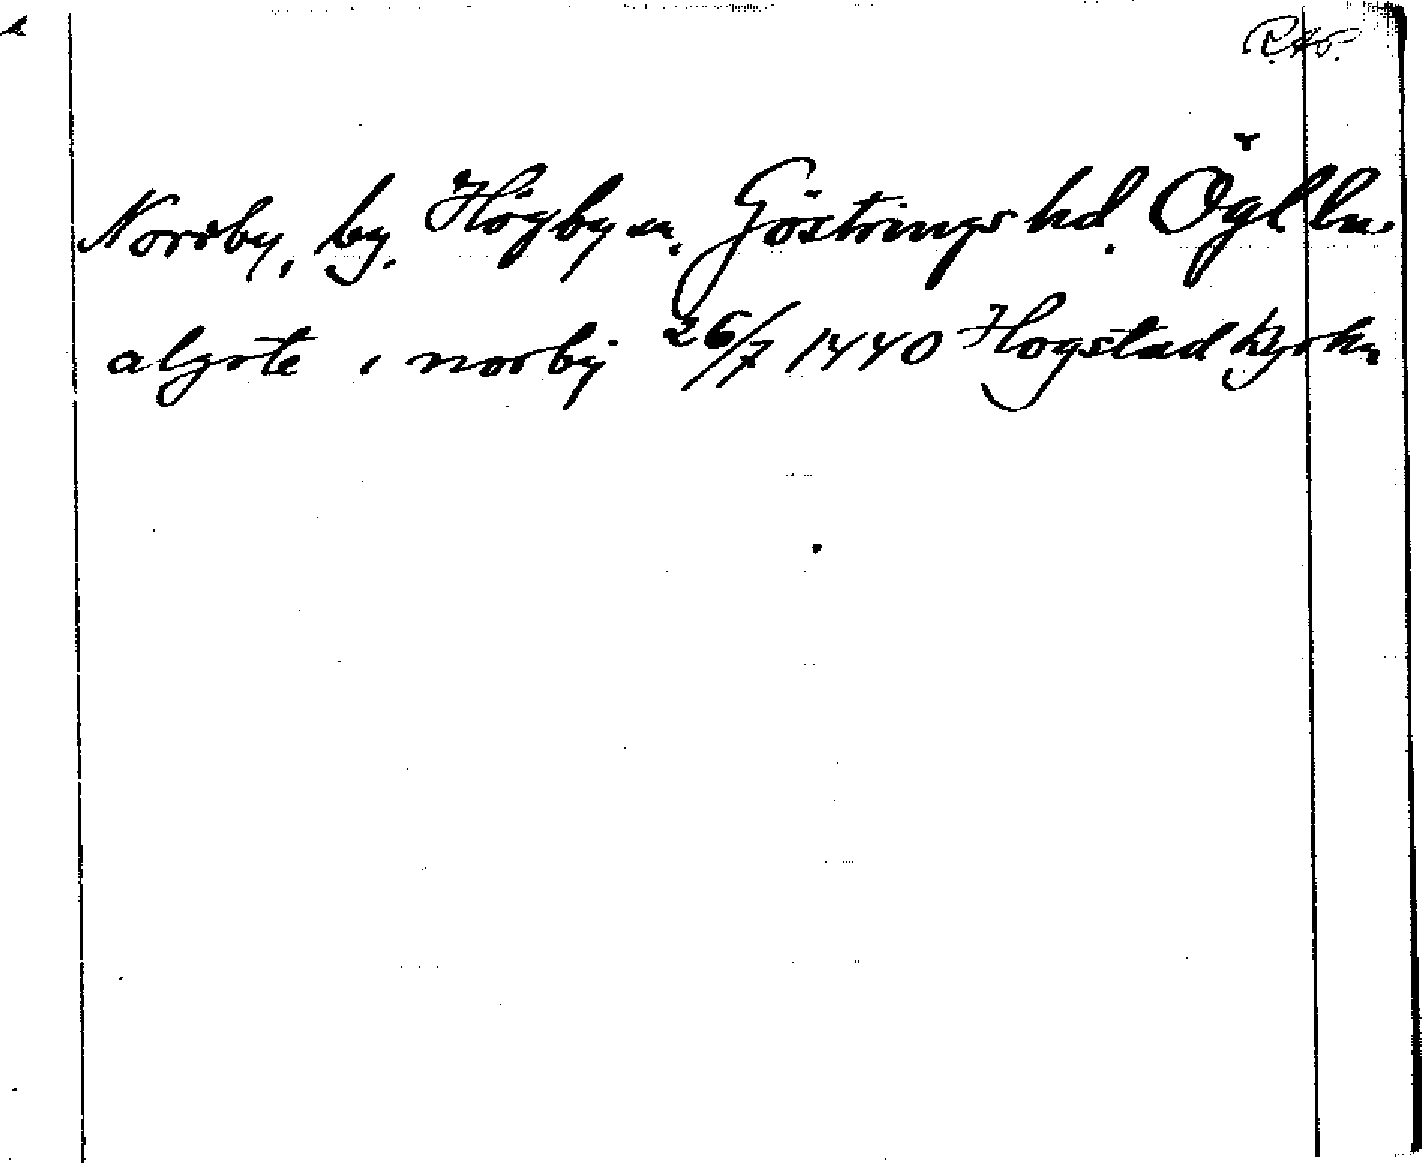 RAP.
Norrby, by. Högby sn. Göstrings hd. Ögl ln.
algote i norby 26/7 1440 Hogstad kyrka